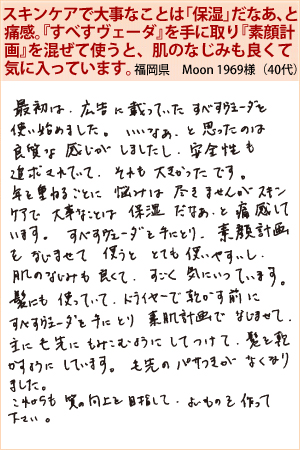 スキンケアで大事なことは「保湿」だなあ、と
痛感。『すべすべヴェーダ』を手に取り『素顔計
画』を混ぜて使うと、肌のなじみも良くて
気に入っています。福岡県　Moon 1969様（40代）
最初は、広告に載っていた すべすべヴェーダを
使い始めました。いいなぁ、と思ったのは
良質な 感じがしましたし、安全性も
追求されていて、それも 大きかったです。
年を重ねるごとに 悩みは 尽きませんが スキン
ケアで 大事なことは 保湿 だなあ、と 痛感して
います。 すべすべヴェーダを手にとり、素顔計画
を なじませて 使うと とても使いやすいし、
肌のなじみも 良くて、すごく 気にいっています。
髪にも 使っていて、ドライヤーで 乾かす前に
すべすべヴェーダを手にとり 素肌計画で なじませて、
主に毛先に もみこむように してつけて、髪を乾
かすように しています。毛先の パサつきが なくなり
ました。
これからも 質の向上を目指して、よいものを作って
下さい。